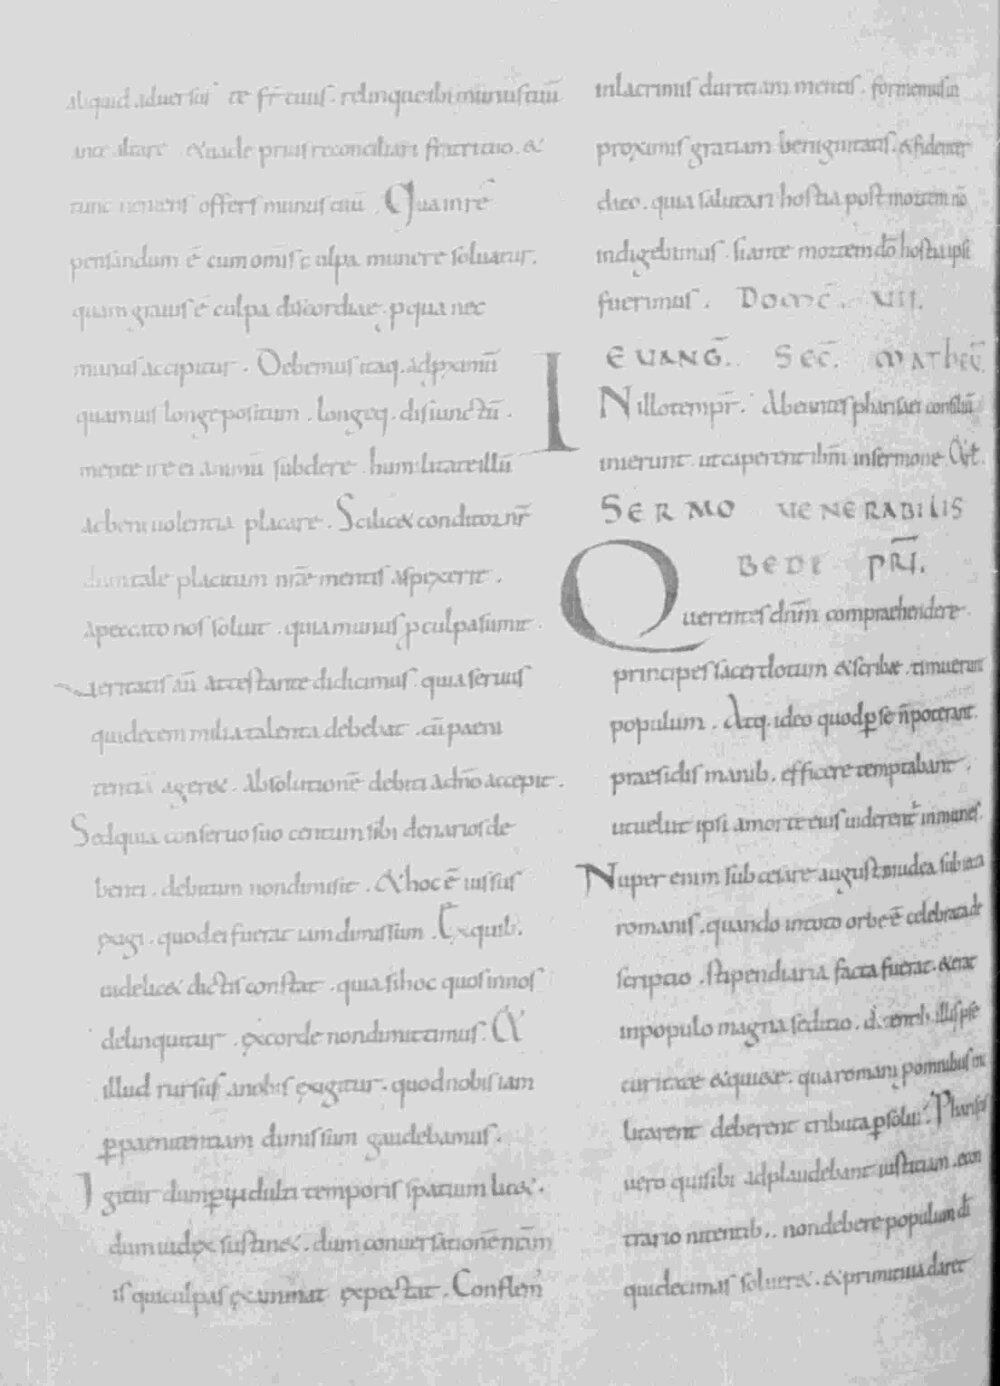 aliquid aduersus te fr̄ tuus. relinque ibi munus tuū
ante altare & uade prius reconciliari fratri tuo. &
tunc ueniens offers munus tuū. Qua in re
pensandum ē cum omīs culpa munere soluatur.
quam grauis ē culpa discordiae. ꝓ qua nec
munus accipitur. Debemus itaq. ad ꝓximū
quamuis longe positum. longeq. disiunctū.
mente ire ei animū subdere. humilitate illū
ac beniuolentia placare. Scilic& conditor nr̄
dum tale placitum nrāe mentis aspexerit.
a peccato nos soluit. quia munus ꝓ culpa sumit.
ueritatis aū attestante didicimus. quia seruus
qui decem milia talenta debebat. cū paeni
tentiā ager&. absolutionē debiti a dn̄o accepit.
Sed quia conseruo suo centum sibi denarios de
benti. debitum non dimisit. & hoc ē iussus
exigi. quod ei fuerat iam dimissum. Ex quib.
uidelic& dictis constat. quia si hoc quos in nos
delinquitur. ex corde non dimittimus. &
illud rursus a nobis exigitur. quod nobis iam
ꝑ paenitentiam dimissum gaudebamus.
Igitur dum ꝑ indulti temporis spatium lic&.
dum iudex sustin&. dum conuersationē nr̄am
is qui culpas examinat expectat. Conflem
in lacrimis duritiam mentis. formemus in
proximis gratiam benignitatis. & fidenter
dico. quia salutari hostia post mortem nō
indigebimus. si ante mortem dō hostia ipsi
fuerimus. DOMC̄. XII.
EVANḠ. SEC̄. MATHEŪ
IN illo tempr̄. Abeuntes pharisaei consiliū
inierunt ut caperent ih̄m in sermone. &rt.
SERMO VENERABILIS
BEDE PRI.
Querentes dn̄m comprachendere
principes sacerdotum & scribae. timuerunt
populum. Atq. ideo quod ꝑ se n̄ poterant.
praesidis manib. efficere temptabant.
ut uelut ipsi a morte eius uiderent̄ inmunes.
Nuper enim sub cesare augusto iudea subiecta
romanis. quando in toto orbe ē celebrata de
scriptio. stipendiaria facta fuerat. & erat
in populo magna seditio. dicentib. illis pse
curitate & qui&e. qua romani ꝓ omnibus mi
litarent deberent tributa ꝑsolui. Pharisaeis
uero qui sibi adplaudebant iusticiam. econ
trario nitentib.. non debere populum dī
qui decimas soluer&. & primitiua daret